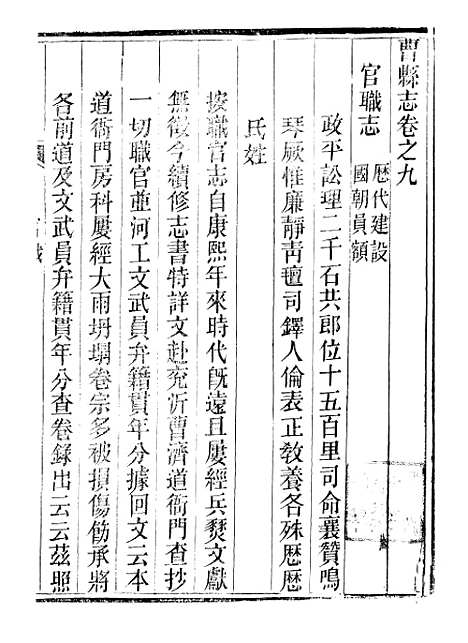 曹縣志卷之九
官職志
歷代建設
國朝員額
政平訟理二千石共郎位十五百里司命襄贊鳴
琴厥惟廉靜靑氊司鐸人倫表正敎養各殊歷歷
氏姓
按職官志自康熙年來時代旣遠且屢經兵燹文獻
無徵今續修志書特詳文赴兖沂曹濟道衙門查抄
一切職官並河工文武員弁籍貫年分據回文云本
道衙門房科屢經大雨坍塌卷宗多被損傷飭承將
各前道及文武員弁籍貫年分查卷錄出云云茲照